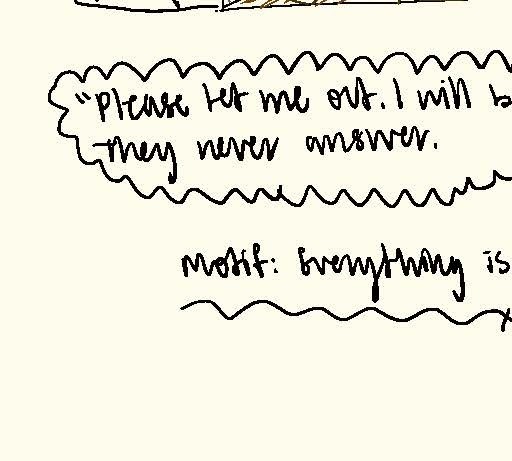 "Please let me out. I will b
They never answer.
Motif: Everything is